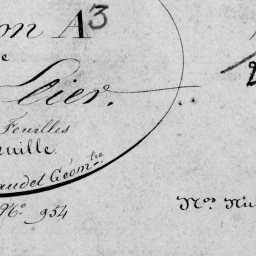 on A3
e
Lier.
Feuilles
uille.
audet Géom.tre
N.o 954
N.os Nu